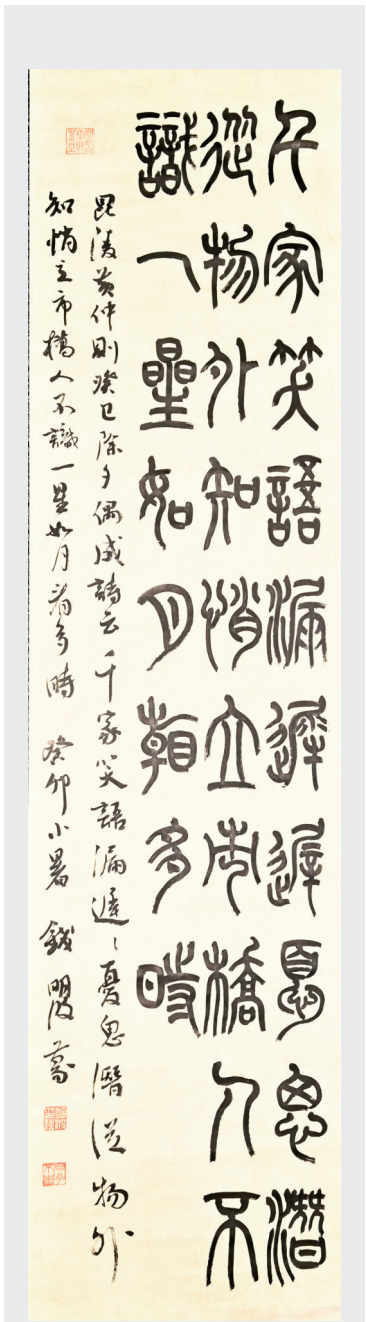 千家笑語漏遲遲憂患潛
從物外知悄立市橋人不
識一星如月看多時
毘陵黃仲則癸巳除夕偶成詩云千家笑語漏遲〻憂患潛從物外
知悄立市橋人不識一星如月看多時 癸卯小暑 錢